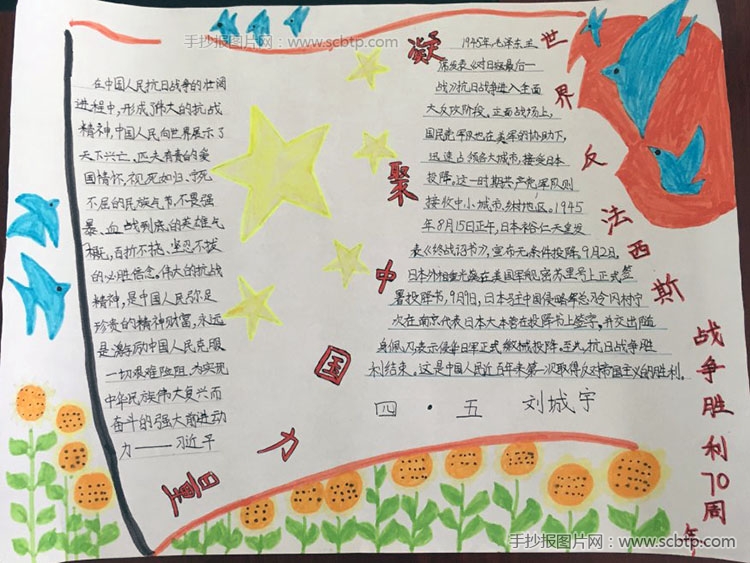 手抄报图片网：www.scbtp.com
在中国人民抗日战争的壮阔
进程中，形成了伟大的抗战
精神，中国人民向世界展示了
天下兴亡、匹夫有责的爱
国情怀，视死如归、宁死
不屈的民族气节，不畏强
暴、血战到底的英雄气
概，百折不挠、坚忍不拔
的必胜信念。伟大的抗战
精神，是中国人民弥足
珍贵的精神财富，永远
是激励中国人民克服
一切艰难险阻、为实现
中华民族伟大复兴而
奋斗的强大精进动
力——习近平
凝聚中国力量
1945年，毛泽东主
席发表《对日寇最后一
战》抗日战争进入全面
大反攻阶段。正面战场上，
国民党军队也在美军的协助下，
迅速占领各大城市，接受日本
投降，这一时期共产党军队则
接收中小城市、乡村地区。1945
年8月15日正午，日本裕仁天皇发
表《终战诏书》，宣布无条件投降，9月2日，
日本外相重光葵在美国军舰密苏里号上正式签
署投降书，9月9日，日本驻中国侵略军总司令冈村宁
次在南京代表日本大本营在投降书上签字，并交出随
身佩刀，表示侵华日军正式缴械投降，至此，抗日战争胜
利结束。这是中国人民近百年来第一次取得反对帝国主义的胜利。
四·五 刘城宇
世界反法西斯
战争胜利70周年
手抄报图片网：www.scbtp.com